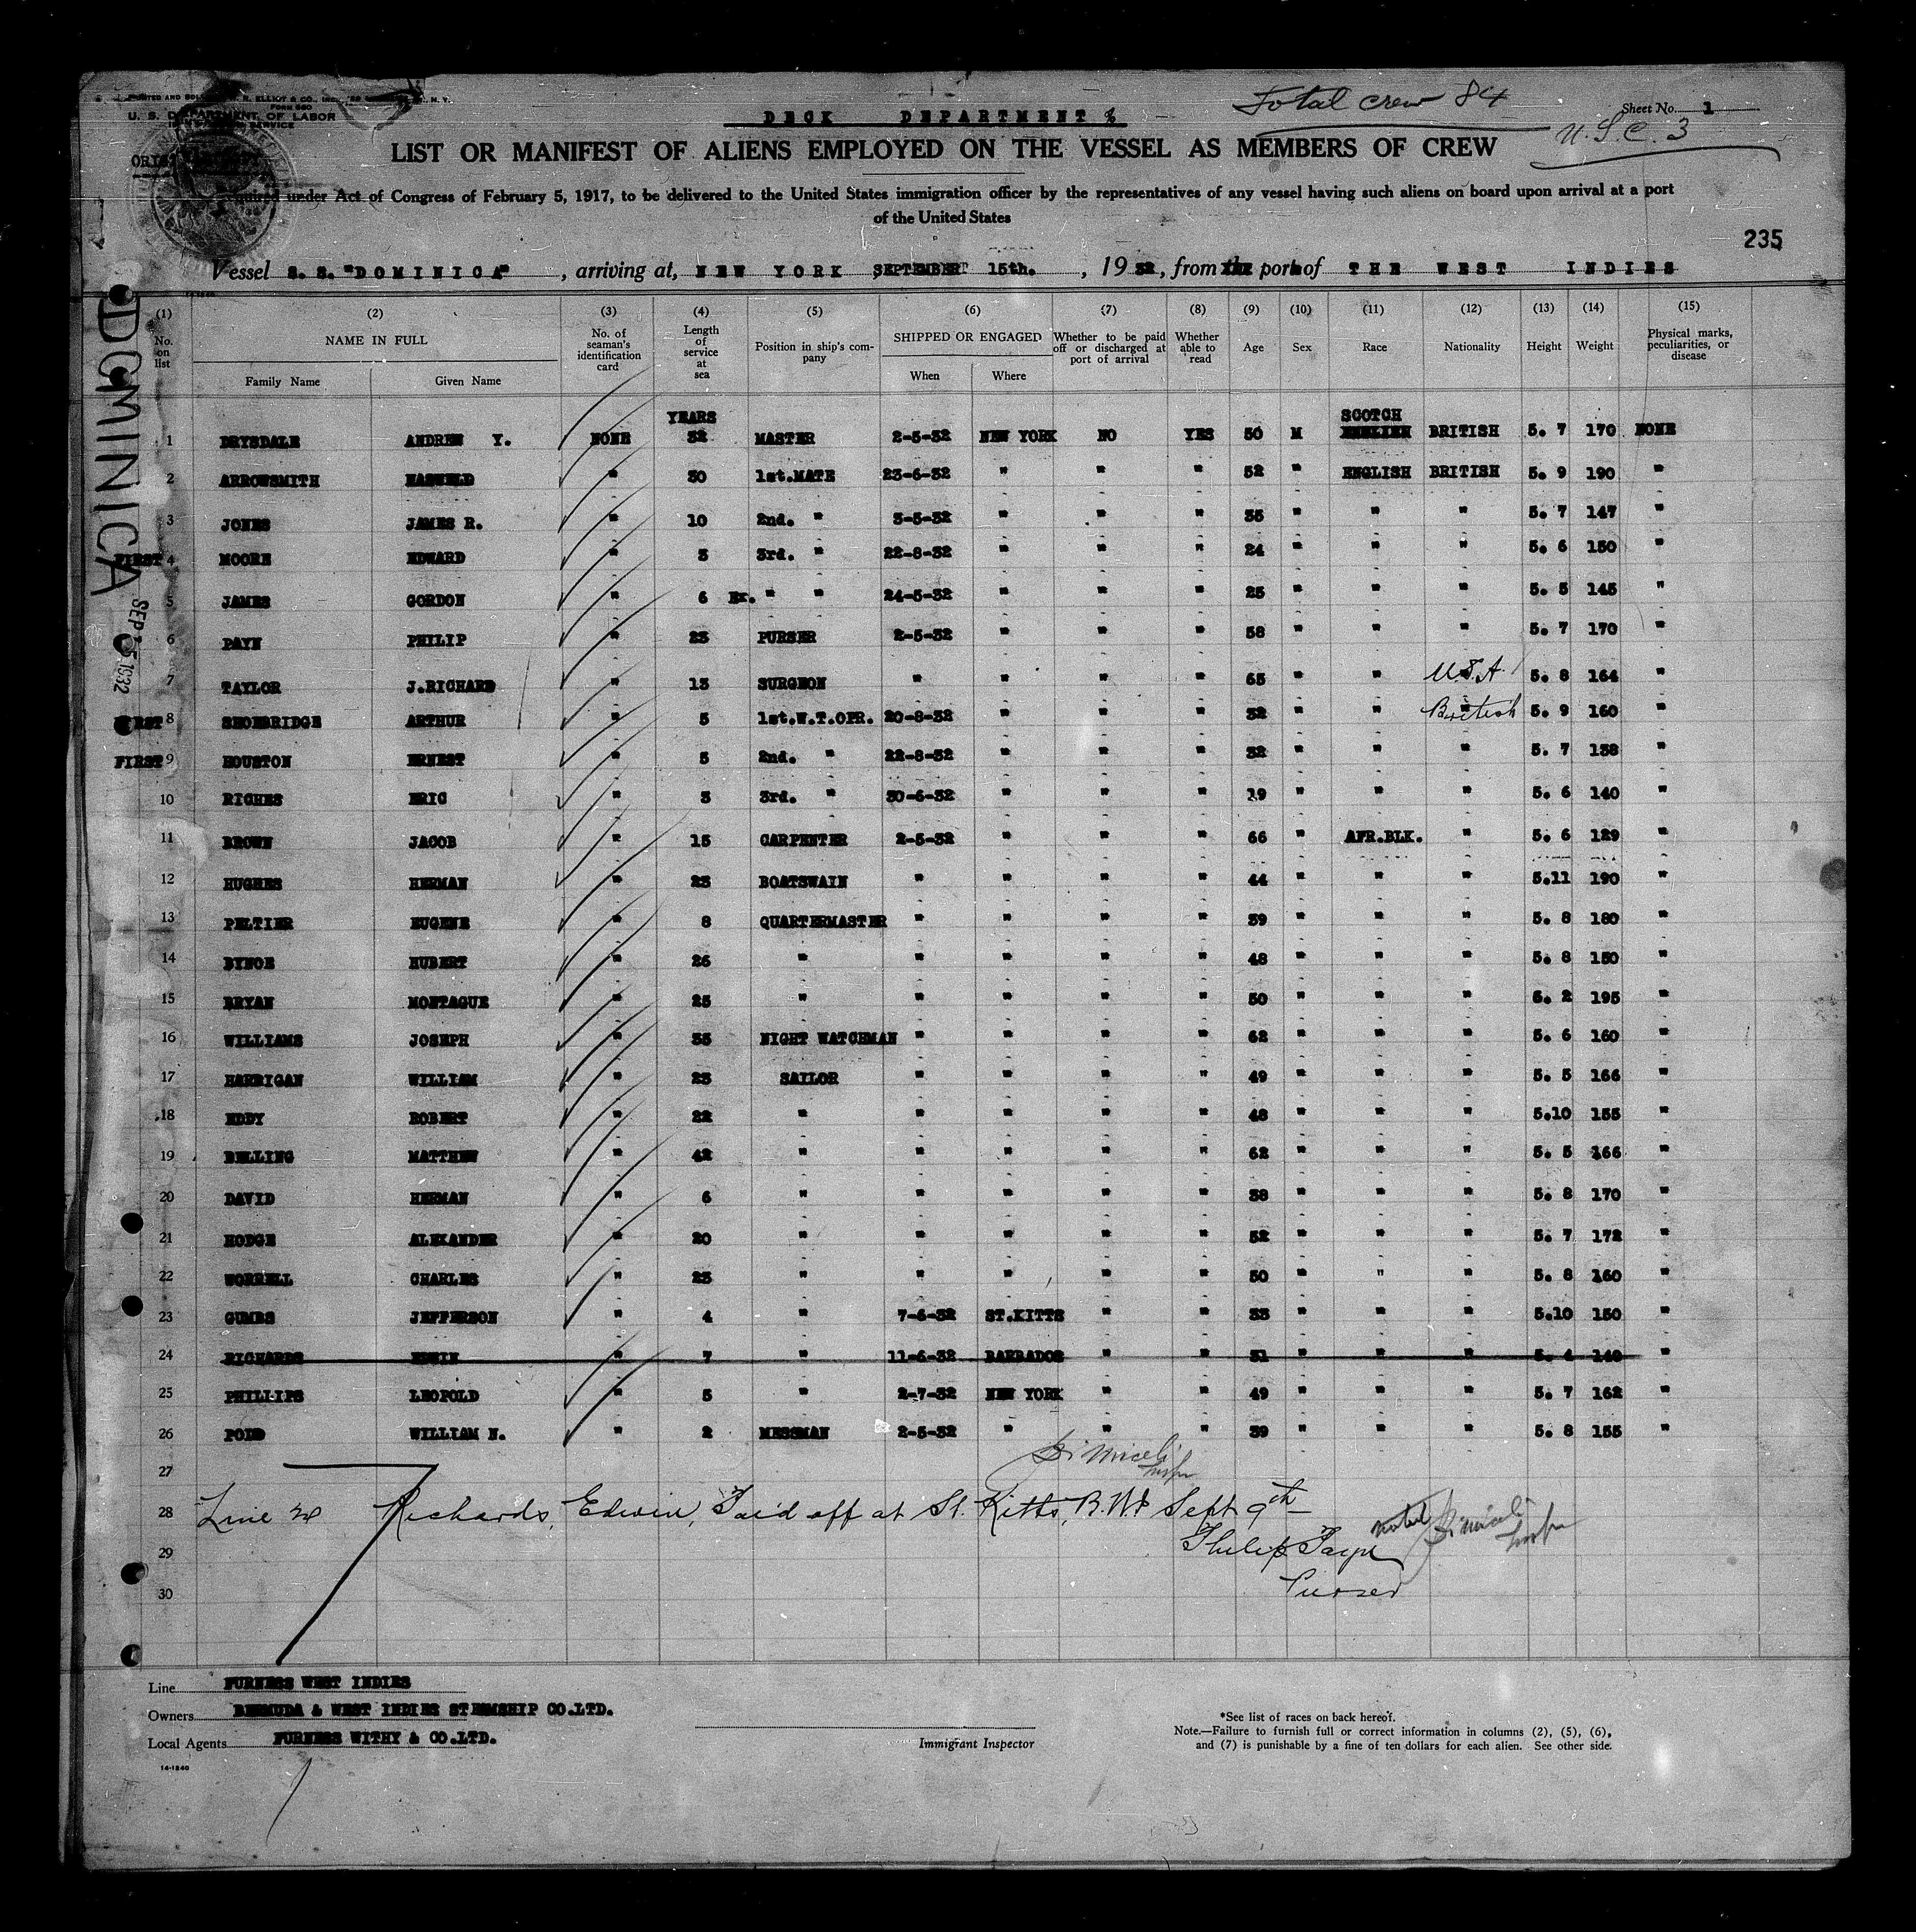 PRINTED AND SOLD BY R. ELLIOT & CO., INC. N. Y.
FORM 680
U. S. DEPARTMENT OF LABOR
IMMIGRATION SERVICE
DECK DEPARTMENT
Total crew 84
Sheet No. 1
U.S.C. 3
LIST OR MANIFEST OF ALIENS EMPLOYED ON THE VESSEL AS MEMBERS OF CREW
Required under Act of Congress of February 5, 1917, to be delivered to the United States immigration officer by the representatives of any vessel having such aliens on board upon arrival at a port
of the United States
235
Vessel S. S. "DOMINICA", arriving at, NEW YORK SEPTEMBER 15th., 1932, from port of THE WEST INDIES
DOMINICA
SEP 15 1932
(1) (2) (3) (4) (5) (6) (7) (8) (9) (10) (11) (12) (13) (14) (15)
No. on list NAME IN FULL Family Name Given Name No. of seaman's identification card Length of service at sea Position in ship's company SHIPPED OR ENGAGED When Where Whether to be paid off or discharged at port of arrival Whether able to read Age Sex Race Nationality Height Weight Physical marks, peculiarities, or disease
YEARS SCOTCH
1 DRYSDALE ANDREW Y. NONE 32 MASTER 2-5-32 NEW YORK NO YES 50 M ENGLISH BRITISH 5. 7 170 NONE
2 ARROWSMITH " 30 1st.MATE 23-6-32 " " " 52 " ENGLISH BRITISH 5. 9 190 "
3 JONES JAMES R. " 10 2nd. " 3-5-32 " " " 35 " " " 5. 7 147 "
FIRST 4 MOORE EDWARD " 3 3rd. " 22-8-32 " " " 24 " " " 5. 6 150 "
5 JAMES GORDON " 6 Ex. " " 24-5-32 " " " 25 " " " 5. 5 145 "
6 PAYN PHILIP " 23 PURSER 2-5-32 " " " 58 " " " 5. 7 170 "
7 TAYLOR J.RICHARD " 13 SURGEON " " " " 65 " " U.S.A. 5. 8 164 "
FIRST 8 SHOEBRIDGE ARTHUR " 5 1st.W.T.OPR. 20-8-32 " " " 32 " " British 5. 9 160 "
FIRST 9 HOUSTON ERNEST " 5 2nd. " 22-8-32 " " " 32 " " " 5. 7 138 "
10 RICHES ERIC " 3 3rd. " 30-6-32 " " " 19 " " " 5. 6 140 "
11 BROWN JACOB " 15 CARPENTER 2-5-32 " " " 66 " AFR.BLK. " 5. 6 129 "
12 HUGHES HERMAN " 23 BOATSWAIN " " " " 44 " " " 5.11 190 "
13 PELTIER EUGENE " 8 QUARTERMASTER " " " " 39 " " " 5. 8 180 "
14 BYNOE HUBERT " 26 " " " " " 48 " " " 5. 8 150 "
15 BRYAN MONTAGUE " 25 " " " " " 50 " " " 5. 2 195 "
16 WILLIAMS JOSEPH " 35 NIGHT WATCHMAN " " " " 62 " " " 5. 6 160 "
17 HARRIGAN WILLIAM " 23 SAILOR " " " " 49 " " " 5. 5 166 "
18 EDDY ROBERT " 22 " " " " " 48 " " " 5.10 155 "
19 BELLING MATTHEW " 42 " " " " " 62 " " " 5. 5 166 "
20 DAVID HERMAN " 6 " " " " " 38 " " " 5. 8 170 "
21 HODGE ALEXANDER " 20 " " " " " 52 " " " 5. 7 172 "
22 WORRELL CHARLES " 23 " " " " " 50 " " " 5. 8 160 "
23 GUMBS JEFFERSON " 4 " 7-6-32 ST.KITTS " " 33 " " " 5.10 150 "
24 RICHARDS EDWIN " 7 " 11-6-32 BARBADOS " " 31 " " " 5. 4 140 "
25 PHILLIPS LEOPOLD " 5 " 2-7-32 NEW YORK " " 49 " " " 5. 7 162 "
26 POND WILLIAM N. " 2 MESSMAN 2-5-32 " " " 39 " " " 5. 8 155 "
27
28 Line 24 Richards, Edwin, Paid off at St. Kitts, B.W.I Sept 9th
29 Philip Payn noted
30 Purser
Line FURNESS WEST INDIES
Owners BERMUDA & WEST INDIES STEMSHIP CO.LTD.
Local Agents FURNESS WITHY & CO.LTD.
Immigrant Inspector
*See list of races on back hereof.
Note.—Failure to furnish full or correct information in columns (2), (5), (6),
and (7) is punishable by a fine of ten dollars for each alien. See other side.
14-1240